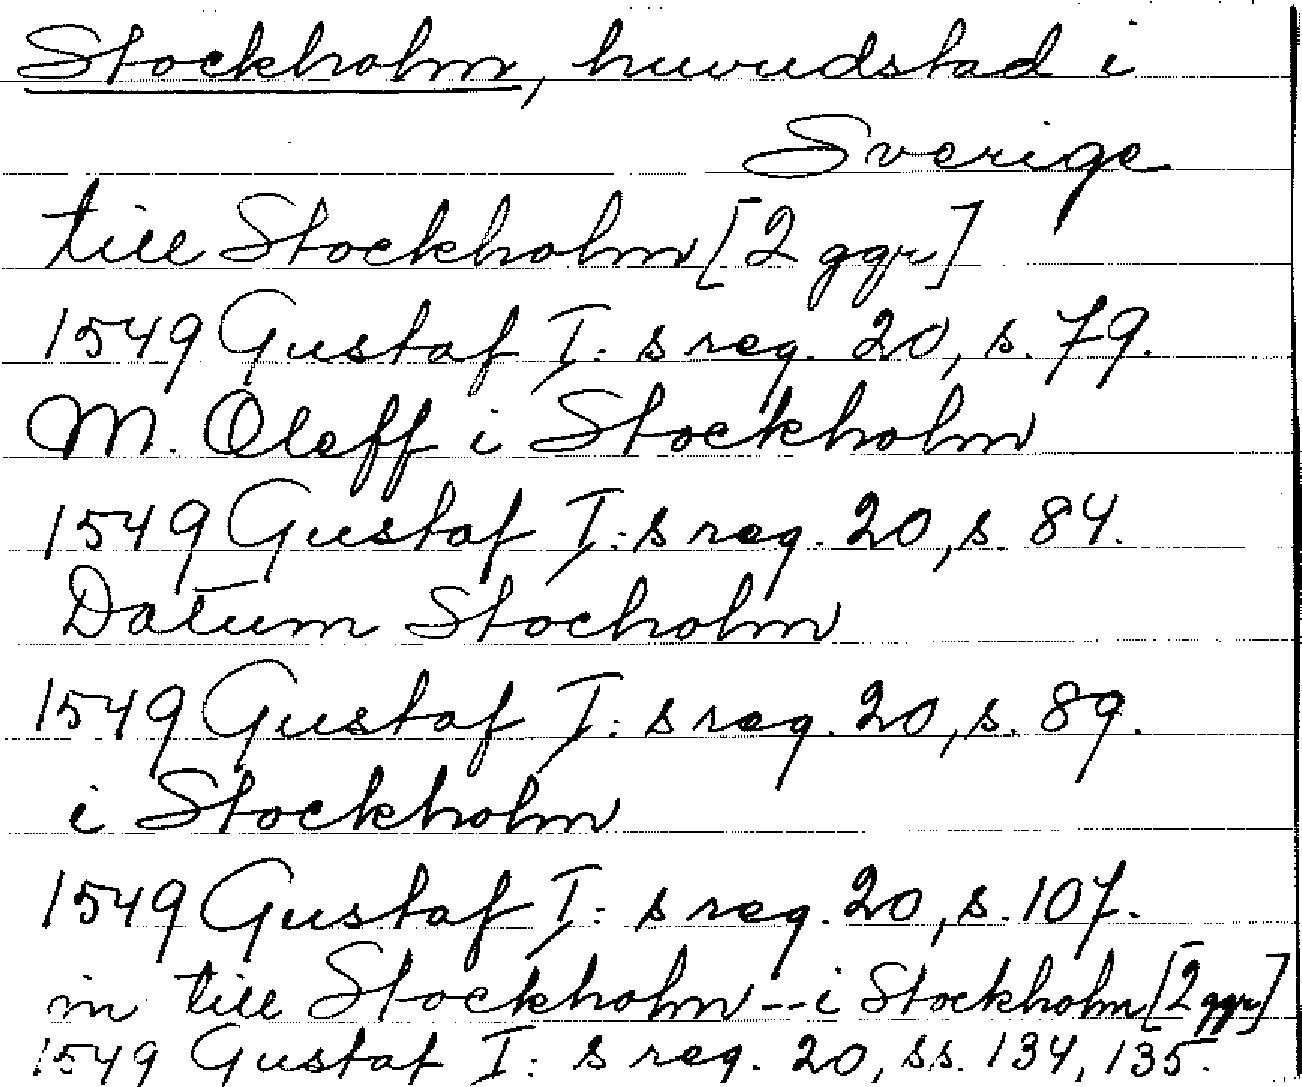 Stockholm, huvudstad i
Sverige
till Stockholm [2 ggr]
1549 Gustaf I: s reg. 20, s. 79.
M. Oleff i Stockholm
1549 Gustaf I: s reg. 20, s. 84.
Datum Stocholm
1549 Gustaf I: s reg. 20, s. 89.
i Stockholm
1549 Gustaf I: s reg. 20, s. 107.
in till Stockholm -- i Stockholm [2 ggr]
1549 Gustaf I: s reg. 20, ss. 134, 135.